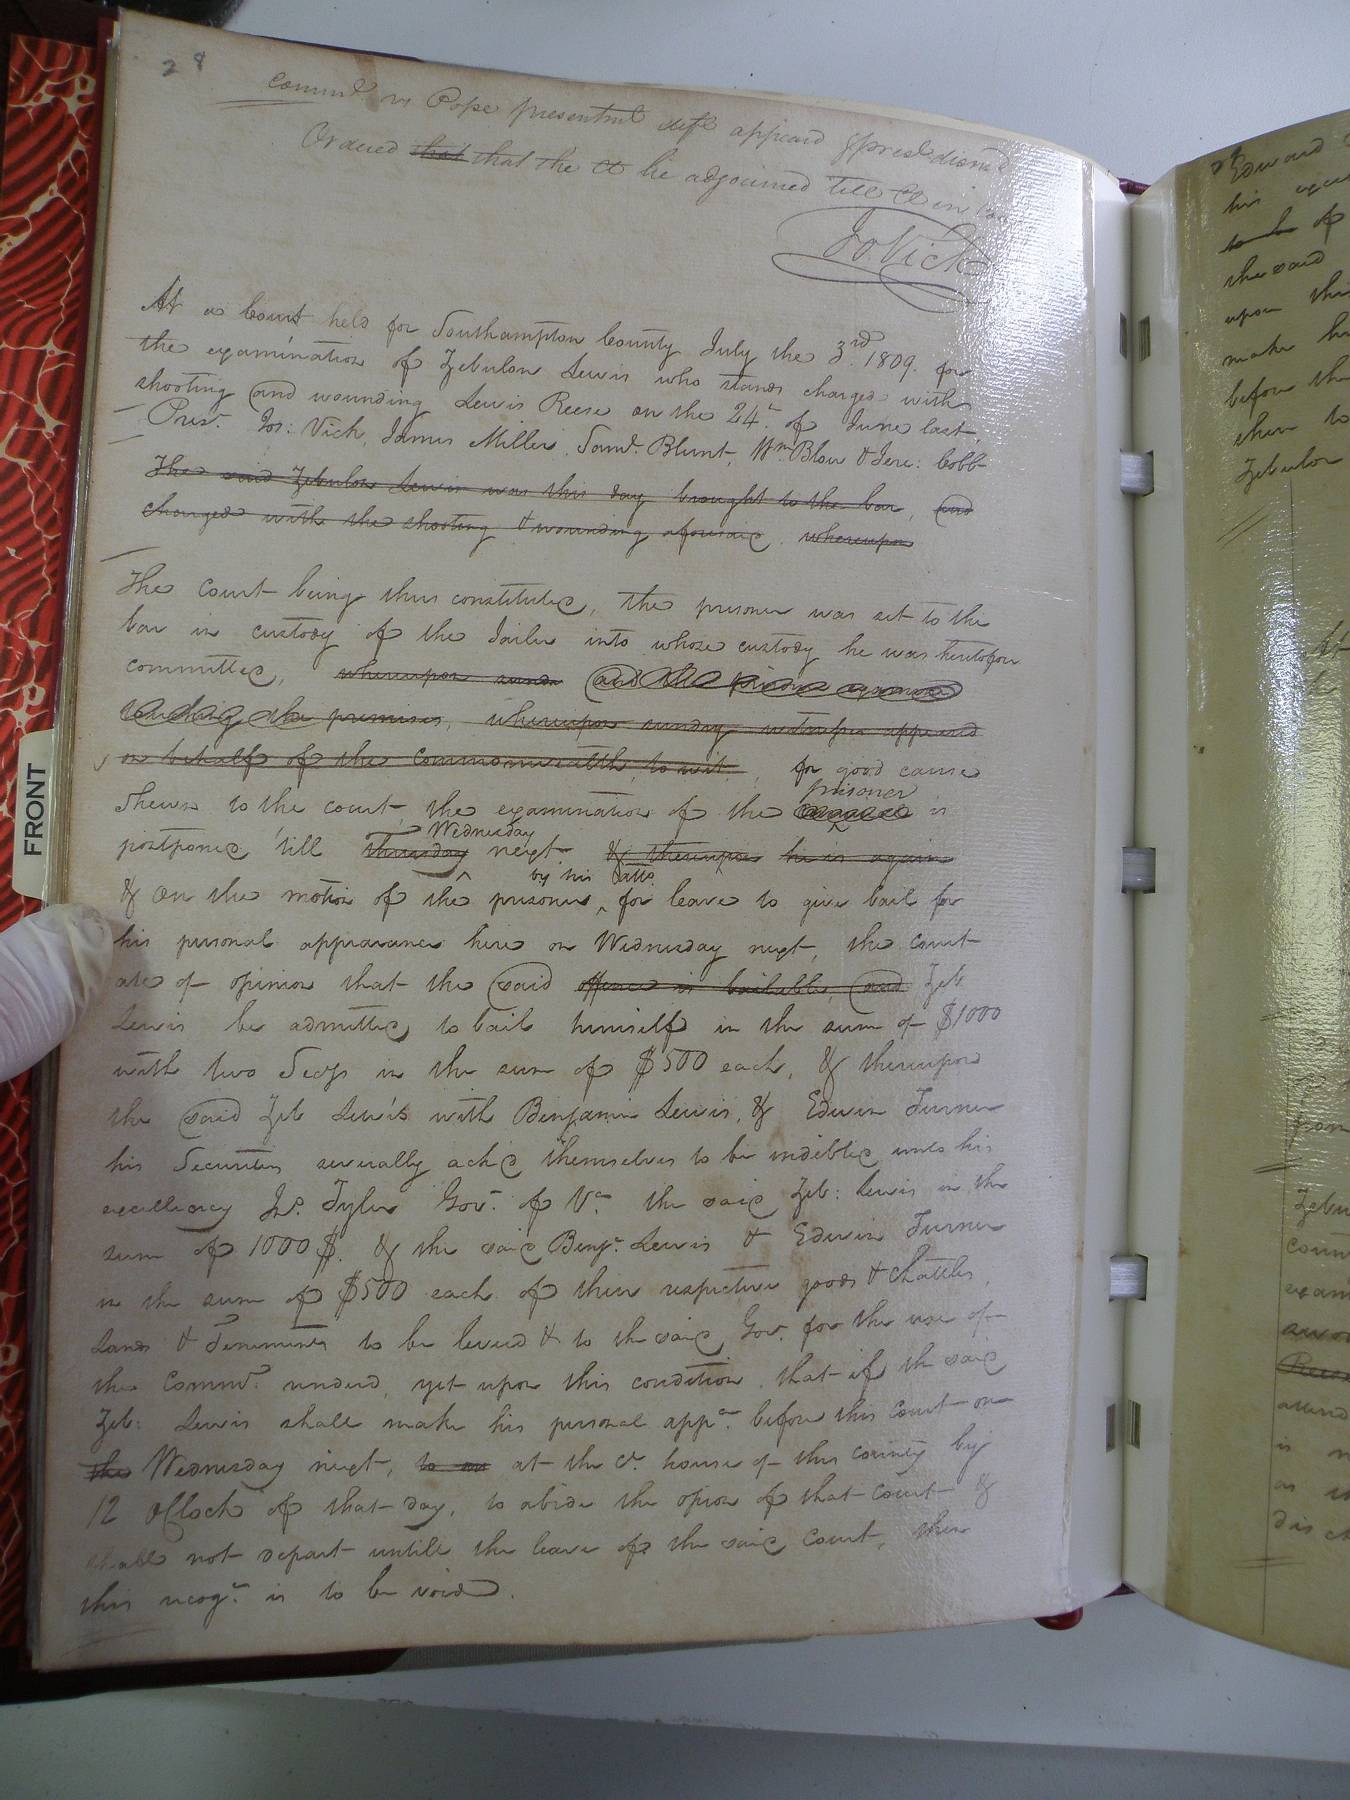 28
Commth vs Pope presentmt deft appeard & presd dismd
Ordered that that the Ct be adjourned till Ct in Course
Jo. Vick
At a Court held for Southampton County July the 3rd 1809. for
the examination of Zebulon Lewis who stands charged with
shooting and wounding Lewis Reese on the 24th of June last,
Prest. Jos: Vick, James Miller, Saml. Blunt, Wm. Blow & Jere: Cobb
The said Zebulon Lewis was this day brought to the bar, and
charged with the shooting & wounding aforesaid, whereupon
The Court being thus constituted, the prisoner was set to the
bar in custody of the Jailer into whose custody he was heretofore
committed, whereupon and the
touching the premises, whereupon sundry witnesses appeared
on behalf of the Commonwealth, to wit, for good cause
prisoner
Shewn to the court, the examination of the is
Wednesday
postponed 'till thursday next & thereupon he is again
by his atto.
& on the motion of the prisoner, for leave to give bail for
his personal appearance here on Wednesday next, the court
are of opinion that the said offence is bailable, and Zeb
Lewis be admitted to bail himself in the sum of $1000
with two Secys in the sum of $500 each, & thereupon
the said Zeb Lewis with Benjamin Lewis, & Edwin Turner
his Securities severally ackd themselves to be indebted unto his
excellency Jno. Tyler Govr. of Va. the said Zeb: Lewis in the
sum of 1000$. & the said Benjn. Lewis & Edwin Turner
in the sum of $500 each of their respective goods & Chattles,
Lands & Tenements to be levied & to the said Gov. for the use of
the Commth. rendered, yet upon this condition, that if the said
Zeb: Lewis shall make his personal appce. before this Court on
the Wednesday next, to at the Ct. house of this county by
12 oClock of that day, to abide the opion of that court &
shall not depart untill the leave of the said Court, then
this recogce. is to be void.
Edward
his
to be of
the said
upon this
make his
before the
then to
Zebulon
FRONT